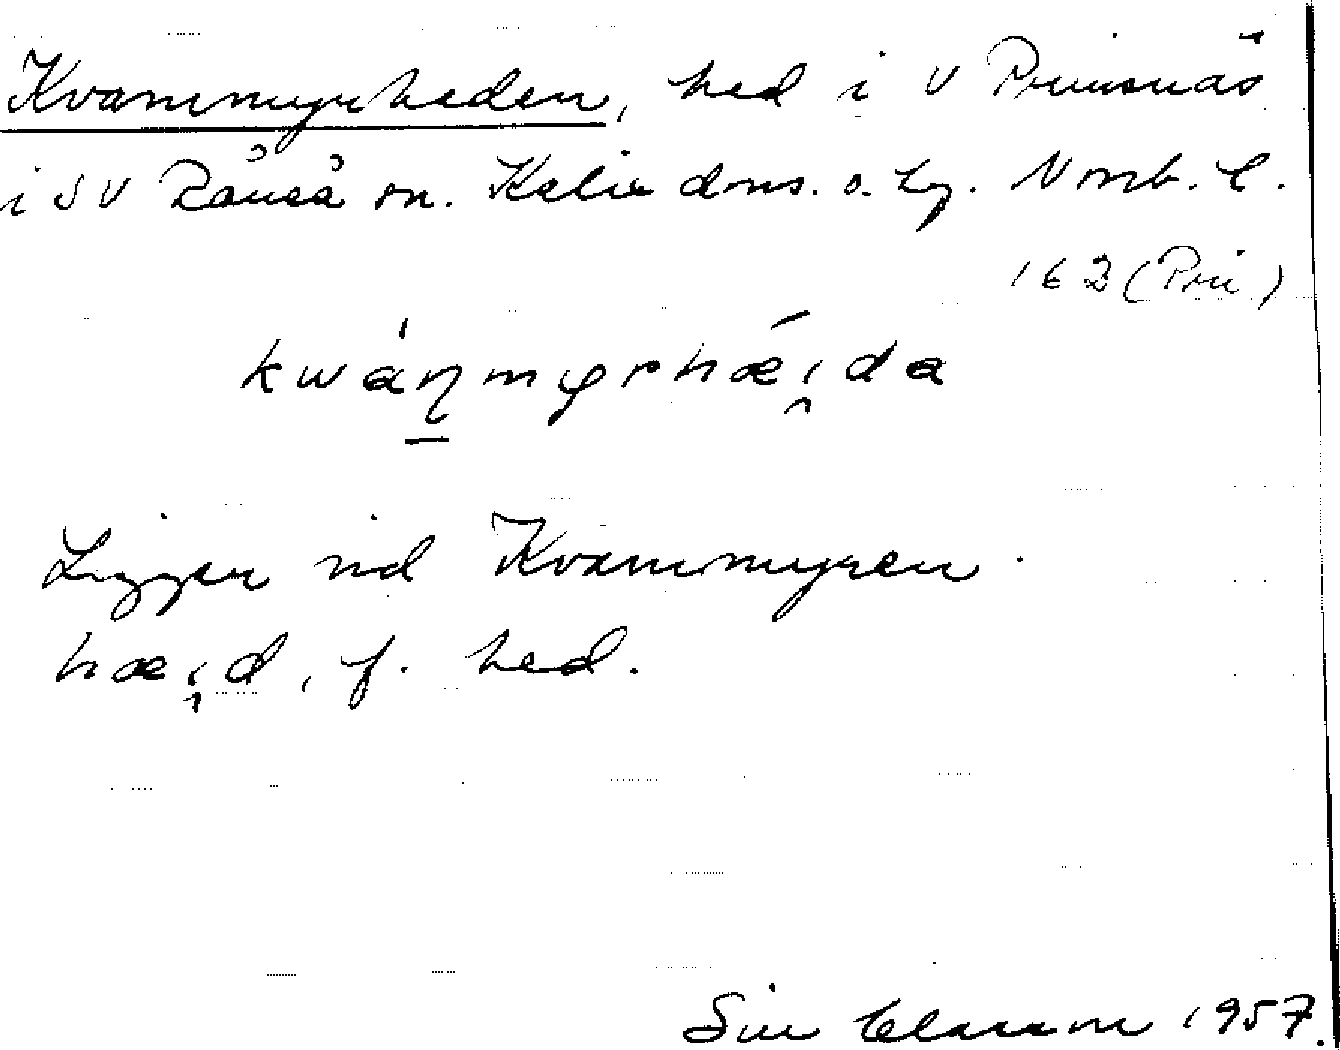 Kvarnmyrheden, hed i V Prinsnäs
i SV Råneå sn. Kalix dms. o. lg. Norrb. l.
162 (Pri)
kwáηmyrhǽi̯da
Ligger vid Kvarnmyren.
hæi̯d, f. hed.
Siw Clarin 1957.